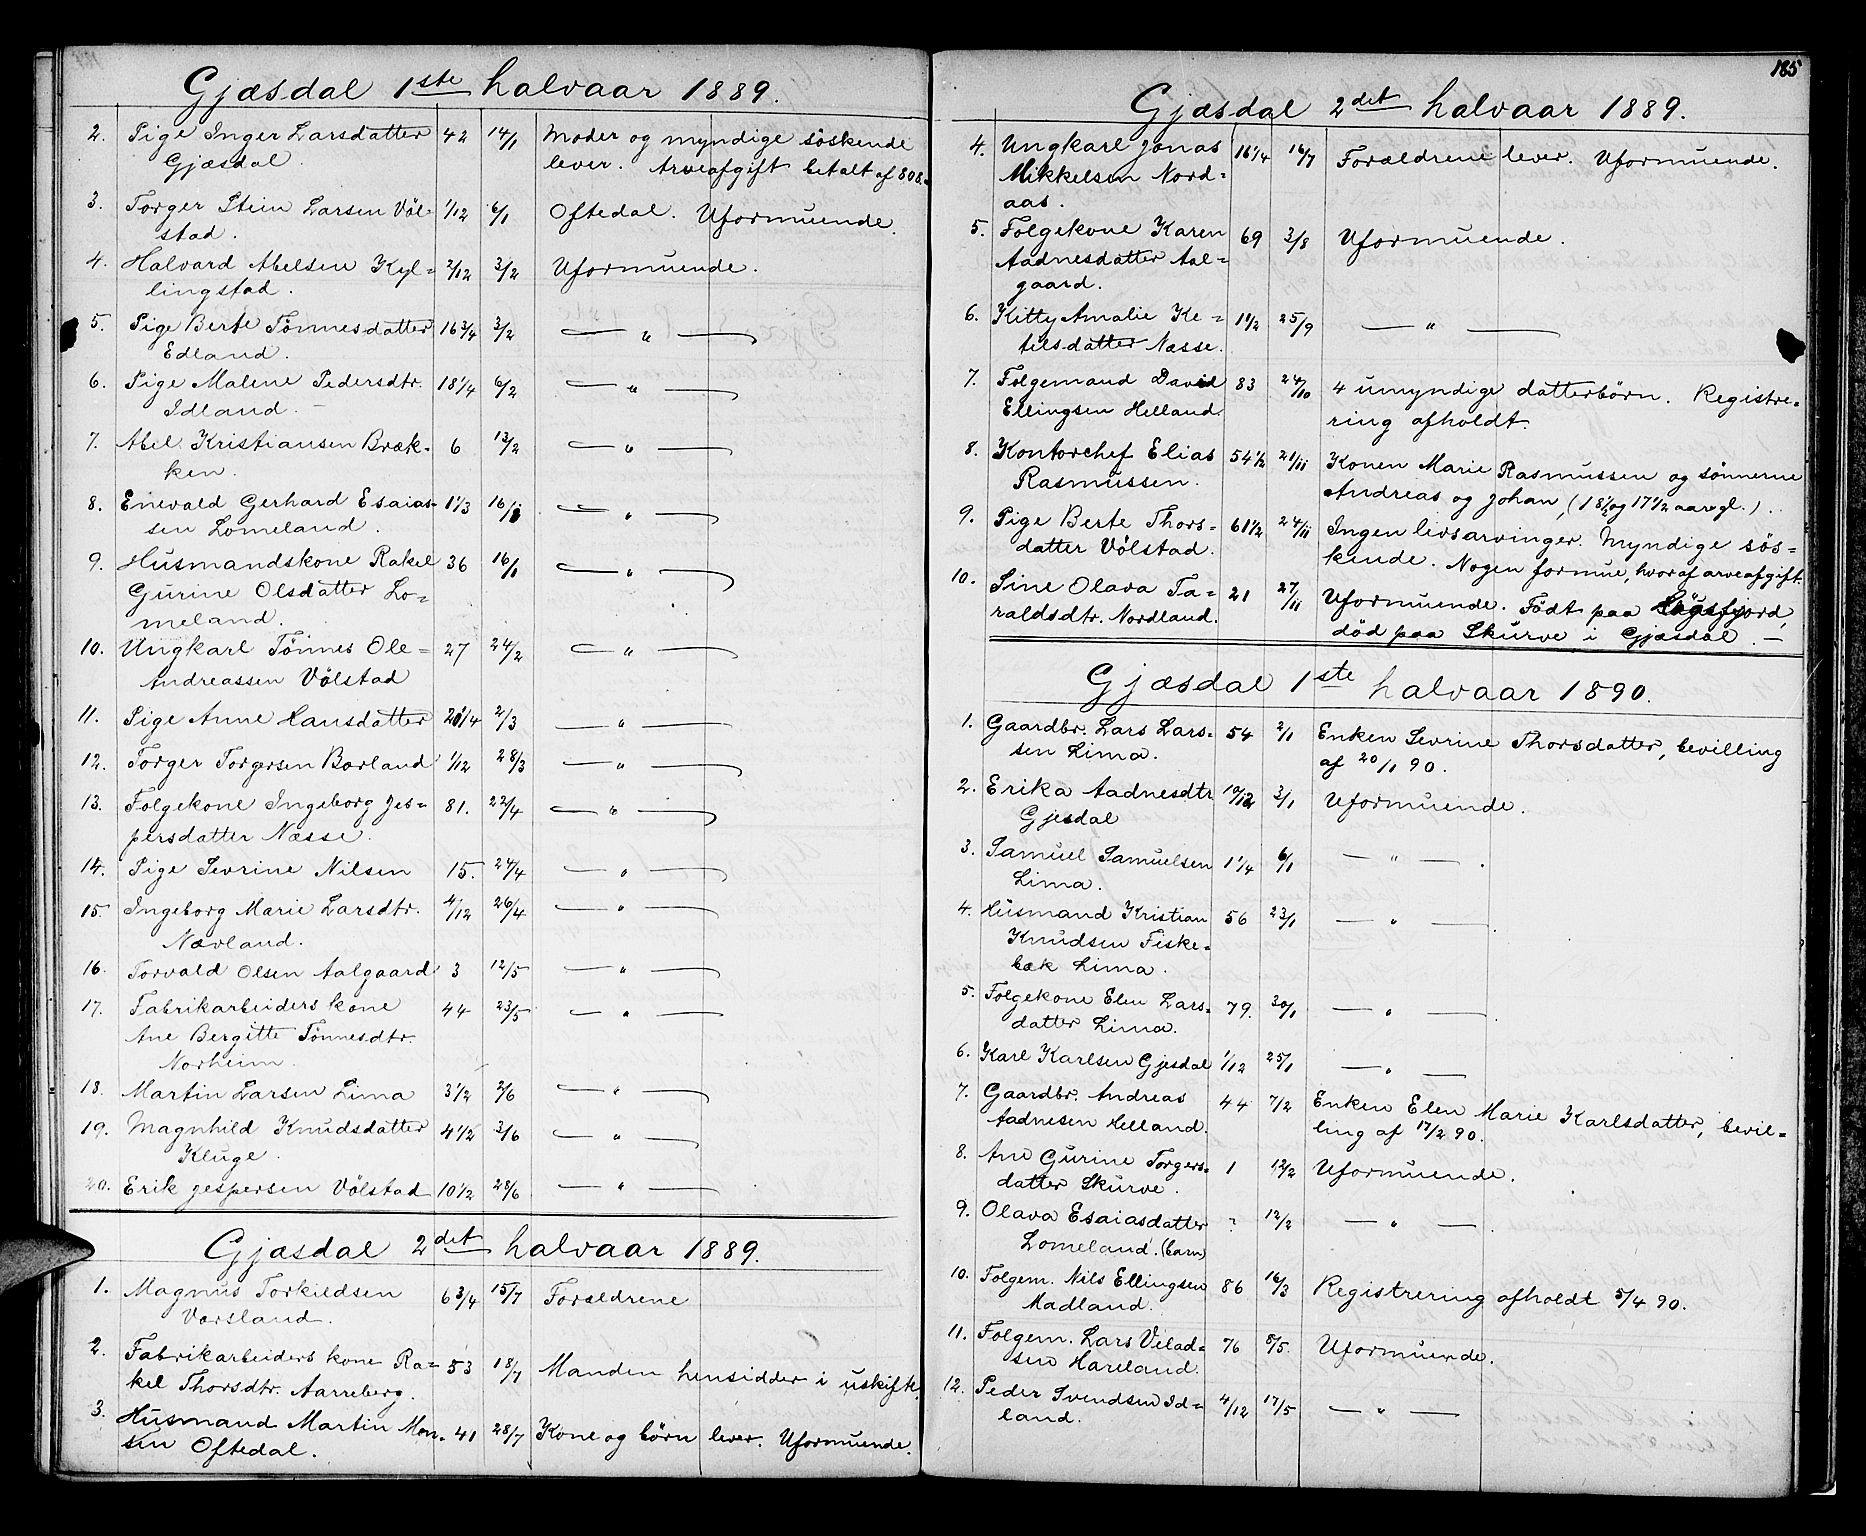 Gjæsdal 1ste halvaar 1889.
2. Pige Inger Larsdatter 42 14/1 Moder og myndige söskende
Gjæsdal. lever. Arveafgift betalt af 808.
3. Torger Stein Larsen Völ- 1/12 6/1 Oftedal. Uformuende.
stad.
4. Halvard Abelsen Kyl- 2/12 3/2 Uformuende.
lingstad.
5. Pige Berte Tönnesdatter 16 3/4 3/2 — " —
Edland.
6. Pige Malene Pedersdtr. 18 1/4 6/2 — " —
Idland. –
7. Abel Kristiansen Bræk- 6 13/2 — " —
ken.
8. Enevald Gerhard Esaias- 1 1/3 16/1 — " —
sen Lomeland.
9. Husmandskone Rakel 36 16/1 — " —
Gurine Olsdatter Lo-
meland.
10. Ungkarl Tönnes Ole- 27 24/2 — " —
Andreassen Völstad
11. Pige Anne Hansdatter 20 1/4 2/3 — " —
12. Torger Torgersen Bærland 1/12 28/3 — " —
13. Folgekone Ingeborg Jes- 81. 22/4 — " —
persdatter Næsse.
14. Pige Sevrine Nilsen 15. 24/4 — " —
15. Ingeborg Marie Larsdtr. 4/12 26/4 — " —
Nævland.
16. Torvald Olsen Aalgaard 3 12/5 — " —
17. Fabrikarbeiders kone 44 23/5 — " —
Ane Bergitte Tönnesdtr.
Norheim.
18. Martin Larsen Lima 3 1/2 2/6 — " —
19. Magnhild Knudsdatter 4 1/2 3/6 — " —
Kluge.
20. Erik Jespersen Völstad 10 1/2 28/6 — " —
Gjæsdal 2det halvaar 1889.
1. Magnus Torkildsen 6 3/4 15/7 Forældrene
Varsland.
2. Fabrikarbeiders kone Ra- 53 18/7 Manden hensidder i uskifte.
kel Thorsdtr. Aarreberg.
3. Husmand Martin Mon- 41 28/7 Kone og börn lever. Uformuende.
sen Oftedal.
185
Gjæsdal 2det halvaar 1889.
4. Ungkarl Jonas 16 1/4 16/7 Forældrene lever. Uformuende.
Mikkelsen Nord-
aas.
5. Folgekone Karen 69 3/8 Uformuende.
Aadnesdatter Aal-
gaard.
6. Kitty Amalie Ke- 1 1/2 25/9 — " —
tilsdatter Næsse.
7. Folgemand David 83 24/10 4 umyndige datterbörn. Registre-
Ellingsen Helland. ring afholdt.
8. Kontorchef Elias 54 1/2 21/11 Konen Marie Rasmussen og sönnerne
Rasmussen. Andreas og Johan, (18 1/2 og 17 1/2 aar gl.)
9. Pige Berte Thors- 61 1/2 24/11 Ingen livsarvinger. Myndige sös-
datter Völstad. kende. Nogen formue, hvoraf arveafgift.
10. Sine Olava Ta- 21 27/11 Uformuende. Födt paa Högsfjord,
raldsdtr. Nordland. död paa Skurve i Gjæsdal. —
Gjæsdal 1ste halvaar 1890.
1. Gaardbr. Lars Lars- 54 2/1 Enken Sevrine Thorsdatter, bevilling
sen Lima. af 20/1 90.
2. Erika Aadnesdtr 10/12 3/1 Uformuende.
Gjesdal
3. Samuel Samuelsen 1 1/4 6/1 — " — .
Lima.
4. Husmand Kristian 56 23/1 — " — .
Knudsen Fiske-
bæk Lima.
5. Folgekone Elen Lars- 79. 30/1 — " — .
datter Lima.
6. Karl Karlsen Gjesdal 1/12 25/1 — " —
7. Gaardbr. Andreas 44 7/2 Enken Elen Marie Karlsdatter, bevil-
Aadnesen Helland. ling af 17/2 90.
8. Ane Gurine Torgers- 1 12/2 Uformuende.
datter Skurve.
9. Olava Esaiasdatter ? 12/2 — " — .
Lomeland. (barn)
10. Folgem. Nils Ellingsen 86 16/3 Registrering afholdt 5/4 90.
Madland.
11. Folgem. Lars Velad- 76 8/5. Uformuende.
sen Hareland.
12. Peder Svendsen Id- 4/12 17/5 — " —
land.